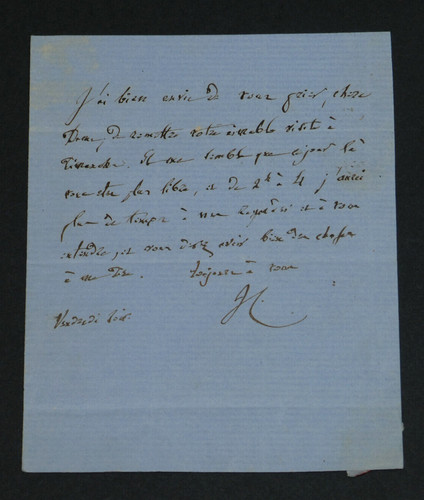 J'ai bien envie de vous prier, chère
de remettre votre aimable visite à
Dimanche. Il me semble que ce jour là
vous êtes plus libre, et de 2h à 4 j'aurai
plus de temps à vous et à vous
entendre, si vous avez bien des choses
à me dire. toujours à vous
Vendredi soir